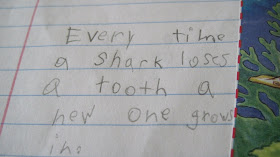 Every time
a shark loses
a tooth a
new one grows
in.